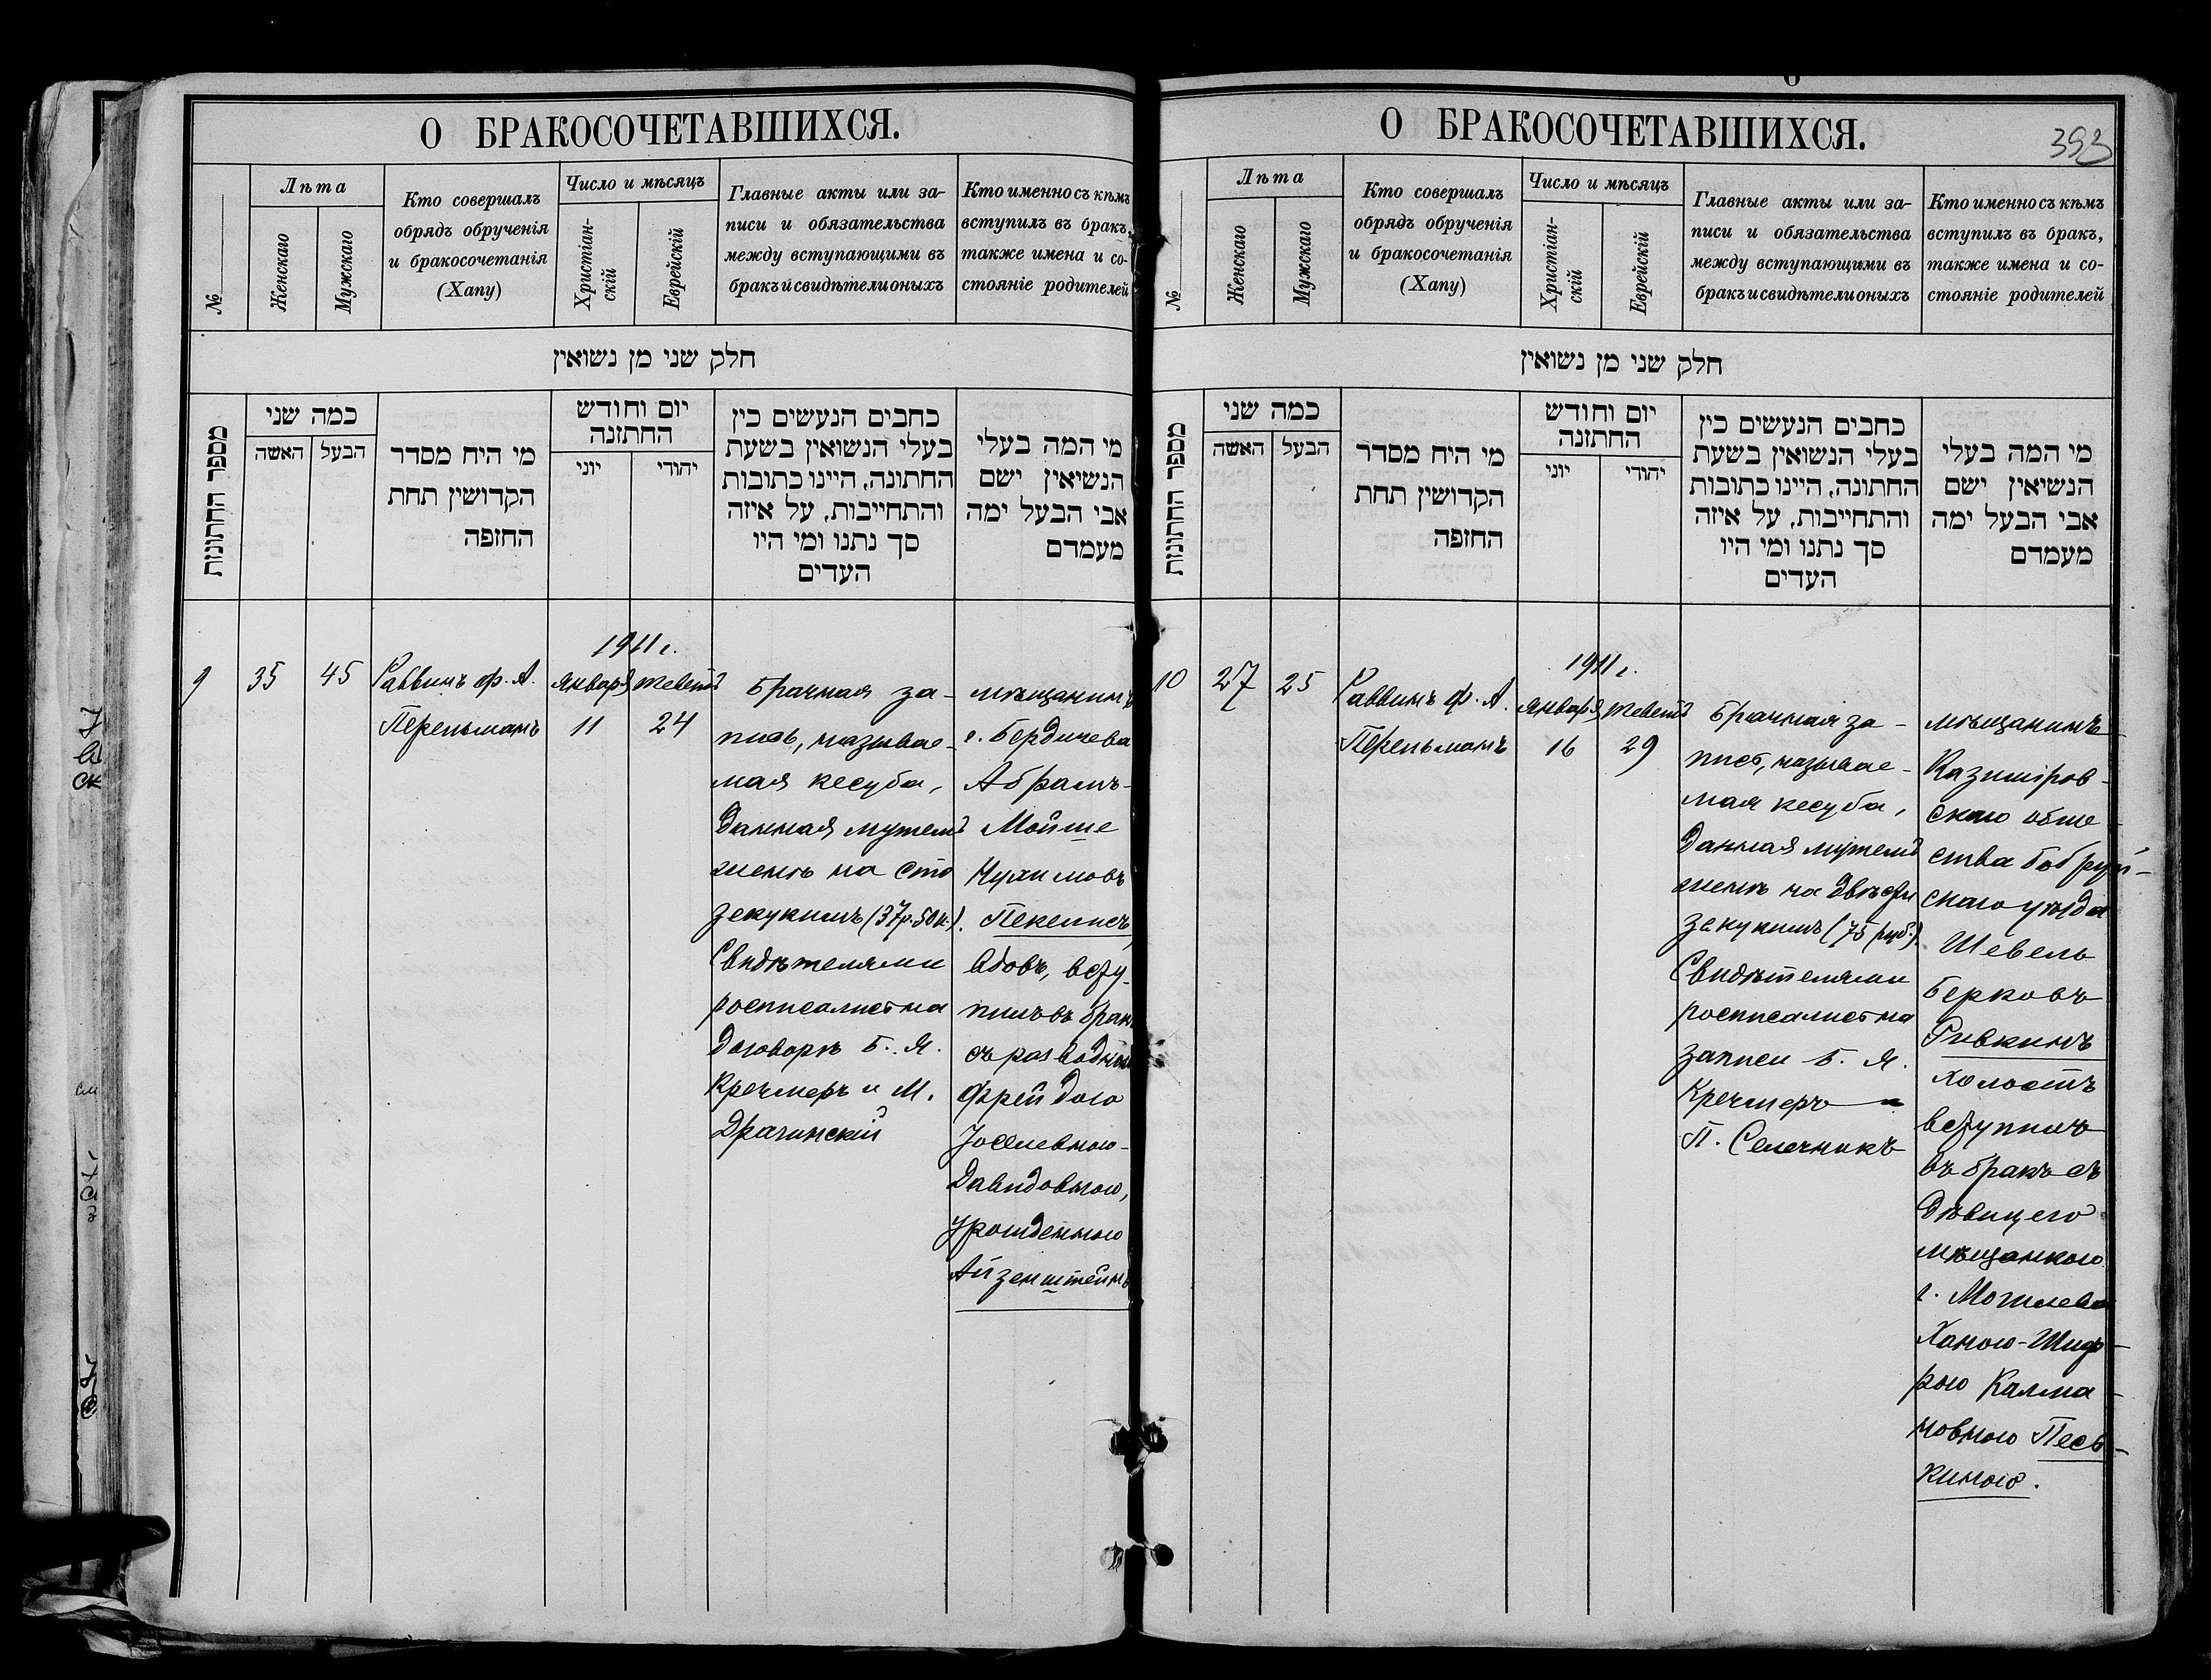 О БРАКОСОЧЕТАВШИХСЯ.
№
Лѣта
Женскаго
Мужскаго
Кто совершалъ
обрядъ обрученія
и бракосочетанія
(Хапу)
Число и мѣсяцъ
Христіан-
скій
Еврейскій
Главные акты или за-
писи и обязательства
между вступающими въ
бракъ и свидѣтели оныхъ
Кто именно съ кѣмъ
вступилъ въ бракъ,
также имена и со-
стояніе родителей
חלק שני מן נשואין
מספר החתונות
כמה שני
האשה
הבעל
מי היח מסדר
הקדושין תחת
החזפה
יום וחודש
החתזנה
יוני
יהודי
כחבים הנעשים כין
בעלי הנשואין בשעת
החתונה, היינו כתובות
והתחייבות, על איזה
סך נתנו ומי היו
העדים
מי המה בעלי
הנשיאין ישם
אבי הבעל ימה
מעמדם
9
35
45
Раввинъ Ф. А.
Перельманъ
1911 г.
Января
11
Тевета
24
Брачная за-
пись, называе-
мая кесуба,
данная мужемъ
женѣ на сто
зекукимъ (37р. 50к.).
Свидѣтелями
росписались на
договорѣ Б. Я.
Кречмеръ и М.
Драчинскій
мѣщанинъ
г. Бердичева
Абрамъ-
Мойше
Нухимовъ
Пекелисъ,
вдовъ, всту-
пилъ въ бракъ
съ разводкой
Фрейдою
Іоселевною-
Давидовною,
урожденною
Айзенштейнъ
О БРАКОСОЧЕТАВШИХСЯ.
393
№
Лѣта
Женскаго
Мужскаго
Кто совершалъ
обрядъ обрученія
и бракосочетанія
(Хапу)
Число и мѣсяцъ
Христіан-
скій
Еврейскій
Главные акты или за-
писи и обязательства
между вступающими въ
бракъ и свидѣтели оныхъ
Кто именно съ кѣмъ
вступилъ въ бракъ,
также имена и со-
стояніе родителей
חלק שני מן נשואין
מספר החתונות
כמה שני
האשה
הבעל
מי היח מסדר
הקדושין תחת
החזפה
יום וחודש
החתזנה
יוני
יהודי
כחבים הנעשים כין
בעלי הנשואין בשעת
החתונה, היינו כתובות
והתחייבות, על איזה
סך נתנו ומי היו
העדים
מי המה בעלי
הנשיאין ישם
אבי הבעל ימה
מעמדם
10
27
25
Раввинъ Ф. А.
Перельманъ
1911 г.
Января
16
Тевета
29
Брачная за-
пись, называе-
мая кесуба,
данная мужемъ
женѣ на двѣсти
зекукимъ (75 руб.).
Свидѣтелями
росписались на
записи Б. Я.
Кречмеръ и
П. Селечникъ
мѣщанинъ
Казимiров-
скаго обще-
ства Бобруй-
скаго уѣзда
Шевель
Берковъ
Ривкинъ
холостъ
вступилъ
въ бракъ съ
дѣвицею
мѣщанкою
г. Могилева
Ханою-Шиф-
рою Калма-
новною Песь-
киною.